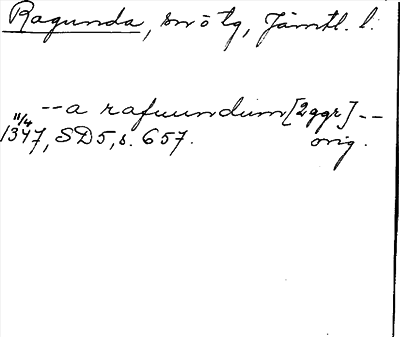 Ragunda, sn o tg, Jämtl. l.
--a rafuundum [2ggr]--
11/4
1347, SD5, s. 657. orig.